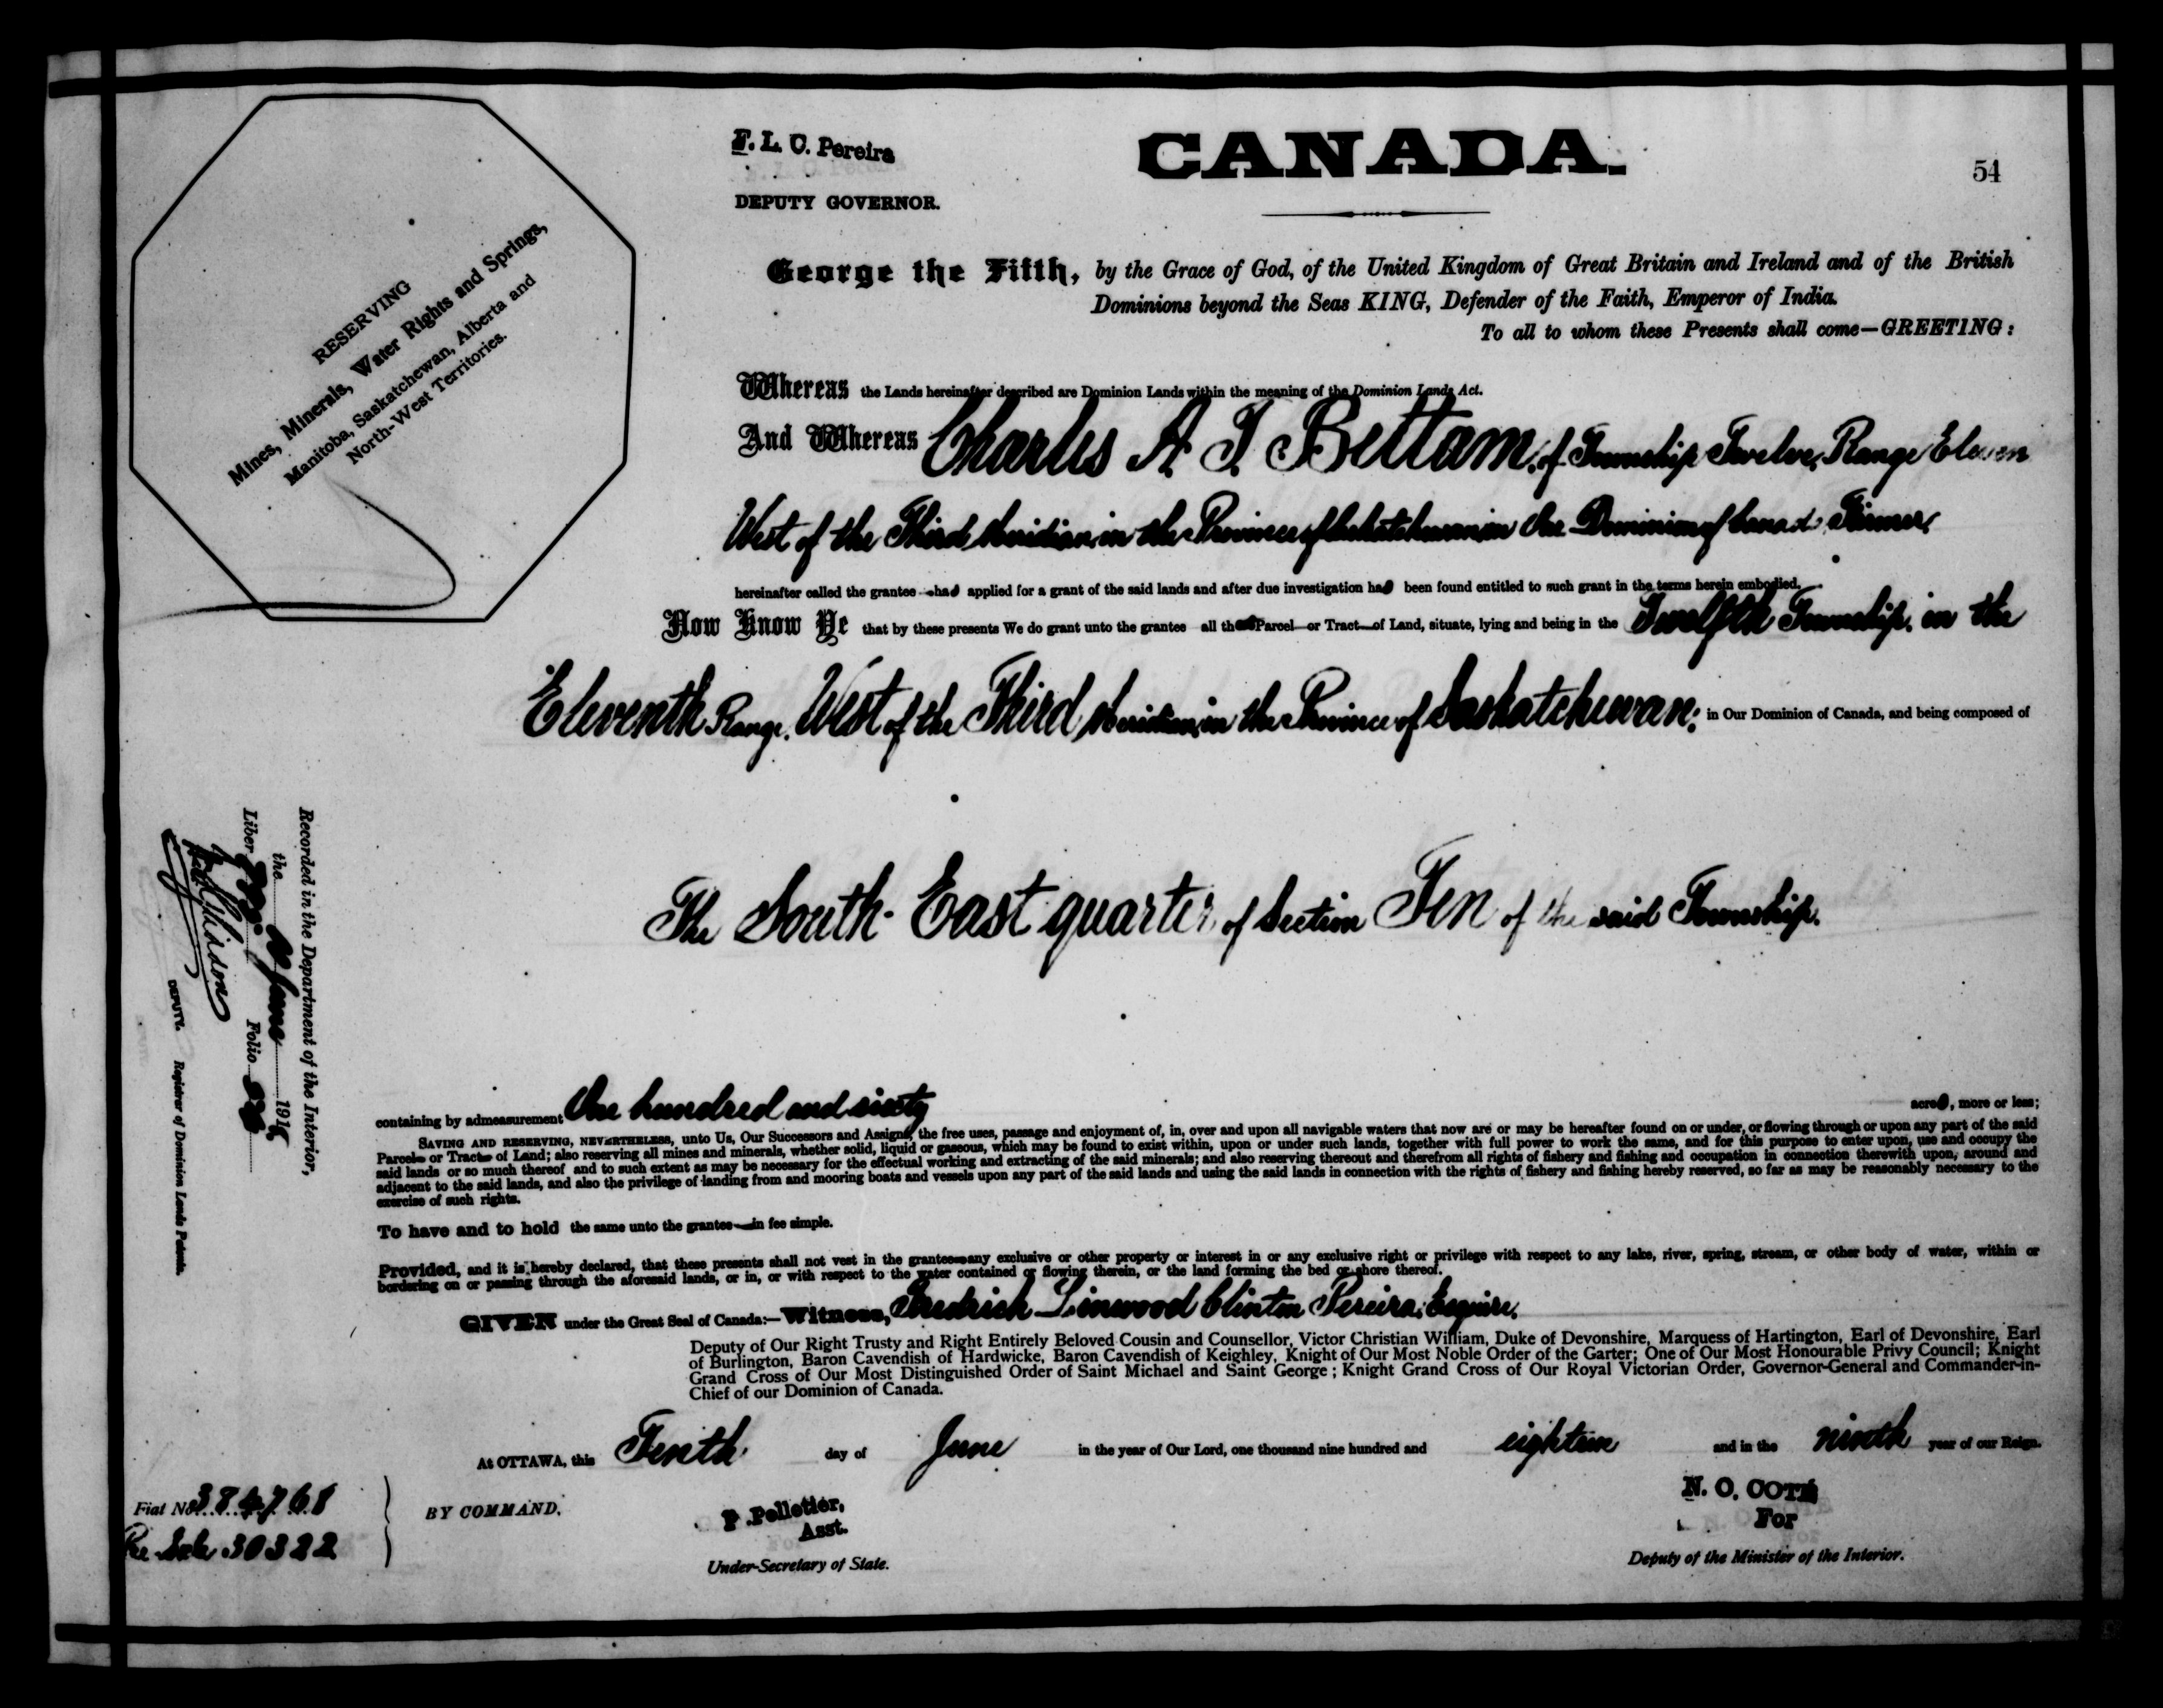 F. L. C. Pereira
DEPUTY GOVERNOR.
CANADA.
54
RESERVING
Mines, Minerals, Water Rights and Springs,
Manitoba, Saskatchewan, Alberta and
North-West Territories.
George the Fifth, by the Grace of God, of the United Kingdom of Great Britain and Ireland and of the British
Dominions beyond the Seas KING, Defender of the Faith, Emperor of India.
To all to whom these Presents shall come—GREETING:
Whereas the Lands hereinafter described are Dominion Lands within the meaning of the Dominion Lands Act.
And Whereas Charles A. J. Bettam, of Township Twelve, Range Eleven
West of the Third Meridian, in the Province of Saskatchewan in the Dominion of Canada Farmer,
hereinafter called the grantee has applied for a grant of the said lands and after due investigation has been found entitled to such grant in the terms herein embodied.
Now Know Ye that by these presents We do grant unto the grantee all that Parcel or Tract of Land, situate, lying and being in the Twelfth Township, in the
Eleventh Range, West of the Third Meridian, in the Province of Saskatchewan; in Our Dominion of Canada, and being composed of
The South-East quarter of Section Ten of the said Township.
containing by admeasurement One hundred and sixty acres, more or less;
SAVING AND RESERVING, NEVERTHELESS, unto Us, Our Successors and Assigns, the free uses, passage and enjoyment of, in, over and upon all navigable waters that now are or may be hereafter found on or under, or flowing through or upon any part of the said
Parcel or Tract of Land; also reserving all mines and minerals, whether solid, liquid or gaseous, which may be found to exist within, upon or under such lands, together with full power to work the same, and for this purpose to enter upon, use and occupy the
said lands or so much thereof and to such extent as may be necessary for the effectual working and extracting of the said minerals; and also reserving thereout and therefrom all rights of fishery and fishing and occupation in connection therewith upon, around and
adjacent to the said lands, and also the privilege of landing from and mooring boats and vessels upon any part of the said lands and using the said lands in connection with the rights of fishery and fishing hereby reserved, so far as may be reasonably necessary to the
exercise of such rights.
To have and to hold the same unto the grantee in fee simple.
Provided, and it is hereby declared, that these presents shall not vest in the grantee any exclusive or other property or interest in or any exclusive right or privilege with respect to any lake, river, spring, stream, or other body of water, within or
bordering on or passing through the aforesaid lands, or in, or with respect to the water contained or flowing therein, or the land forming the bed or shore thereof.
GIVEN under the Great Seal of Canada:—Witness, Fredrick Linwood Clinton Pereira, Esquire,
Deputy of Our Right Trusty and Right Entirely Beloved Cousin and Counsellor, Victor Christian William, Duke of Devonshire, Marquess of Hartington, Earl of Devonshire, Earl
of Burlington, Baron Cavendish of Hardwicke, Baron Cavendish of Keighley, Knight of Our Most Noble Order of the Garter; One of Our Most Honourable Privy Council; Knight
Grand Cross of Our Most Distinguished Order of Saint Michael and Saint George; Knight Grand Cross of Our Royal Victorian Order, Governor-General and Commander-in-
Chief of our Dominion of Canada.
At OTTAWA, this Tenth day of June in the year of Our Lord, one thousand nine hundred and eighteen and in the ninth year of our Reign.
Fiat No. 384768
Pre. Sale. 30322
BY COMMAND,
P. Pelletier,
Asst.
Under-Secretary of State.
N. O. COTÉ
For
Deputy of the Minister of the Interior.
Recorded in the Department of the Interior,
the June 1918
Liber Folio
DEPUTY. Registrar of Dominion Lands Patents.